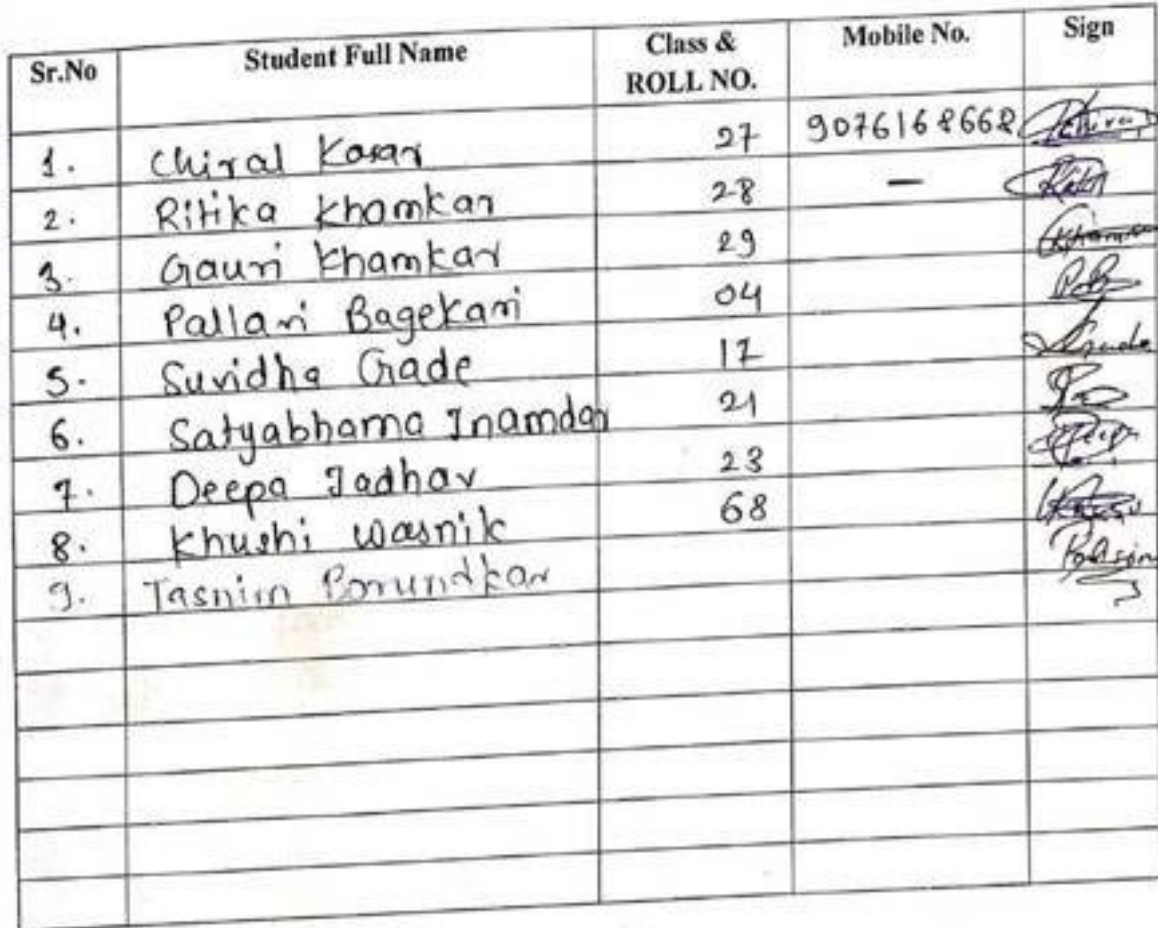 Sr.No Student Full Name Class & ROLL NO. Mobile No. Sign
1. Chiral Kasar 27 9076168668
2. Ritika Khamkar 28 —
3. Gauri Khamkar 29
4. Pallavi Bagekari 04
5. Suvidha Gade 17
6. Satyabhama Inamdar 21
7. Deepa Jadhav 23
8. Khushi Wasnik 68
9. Tasnim Borundkar